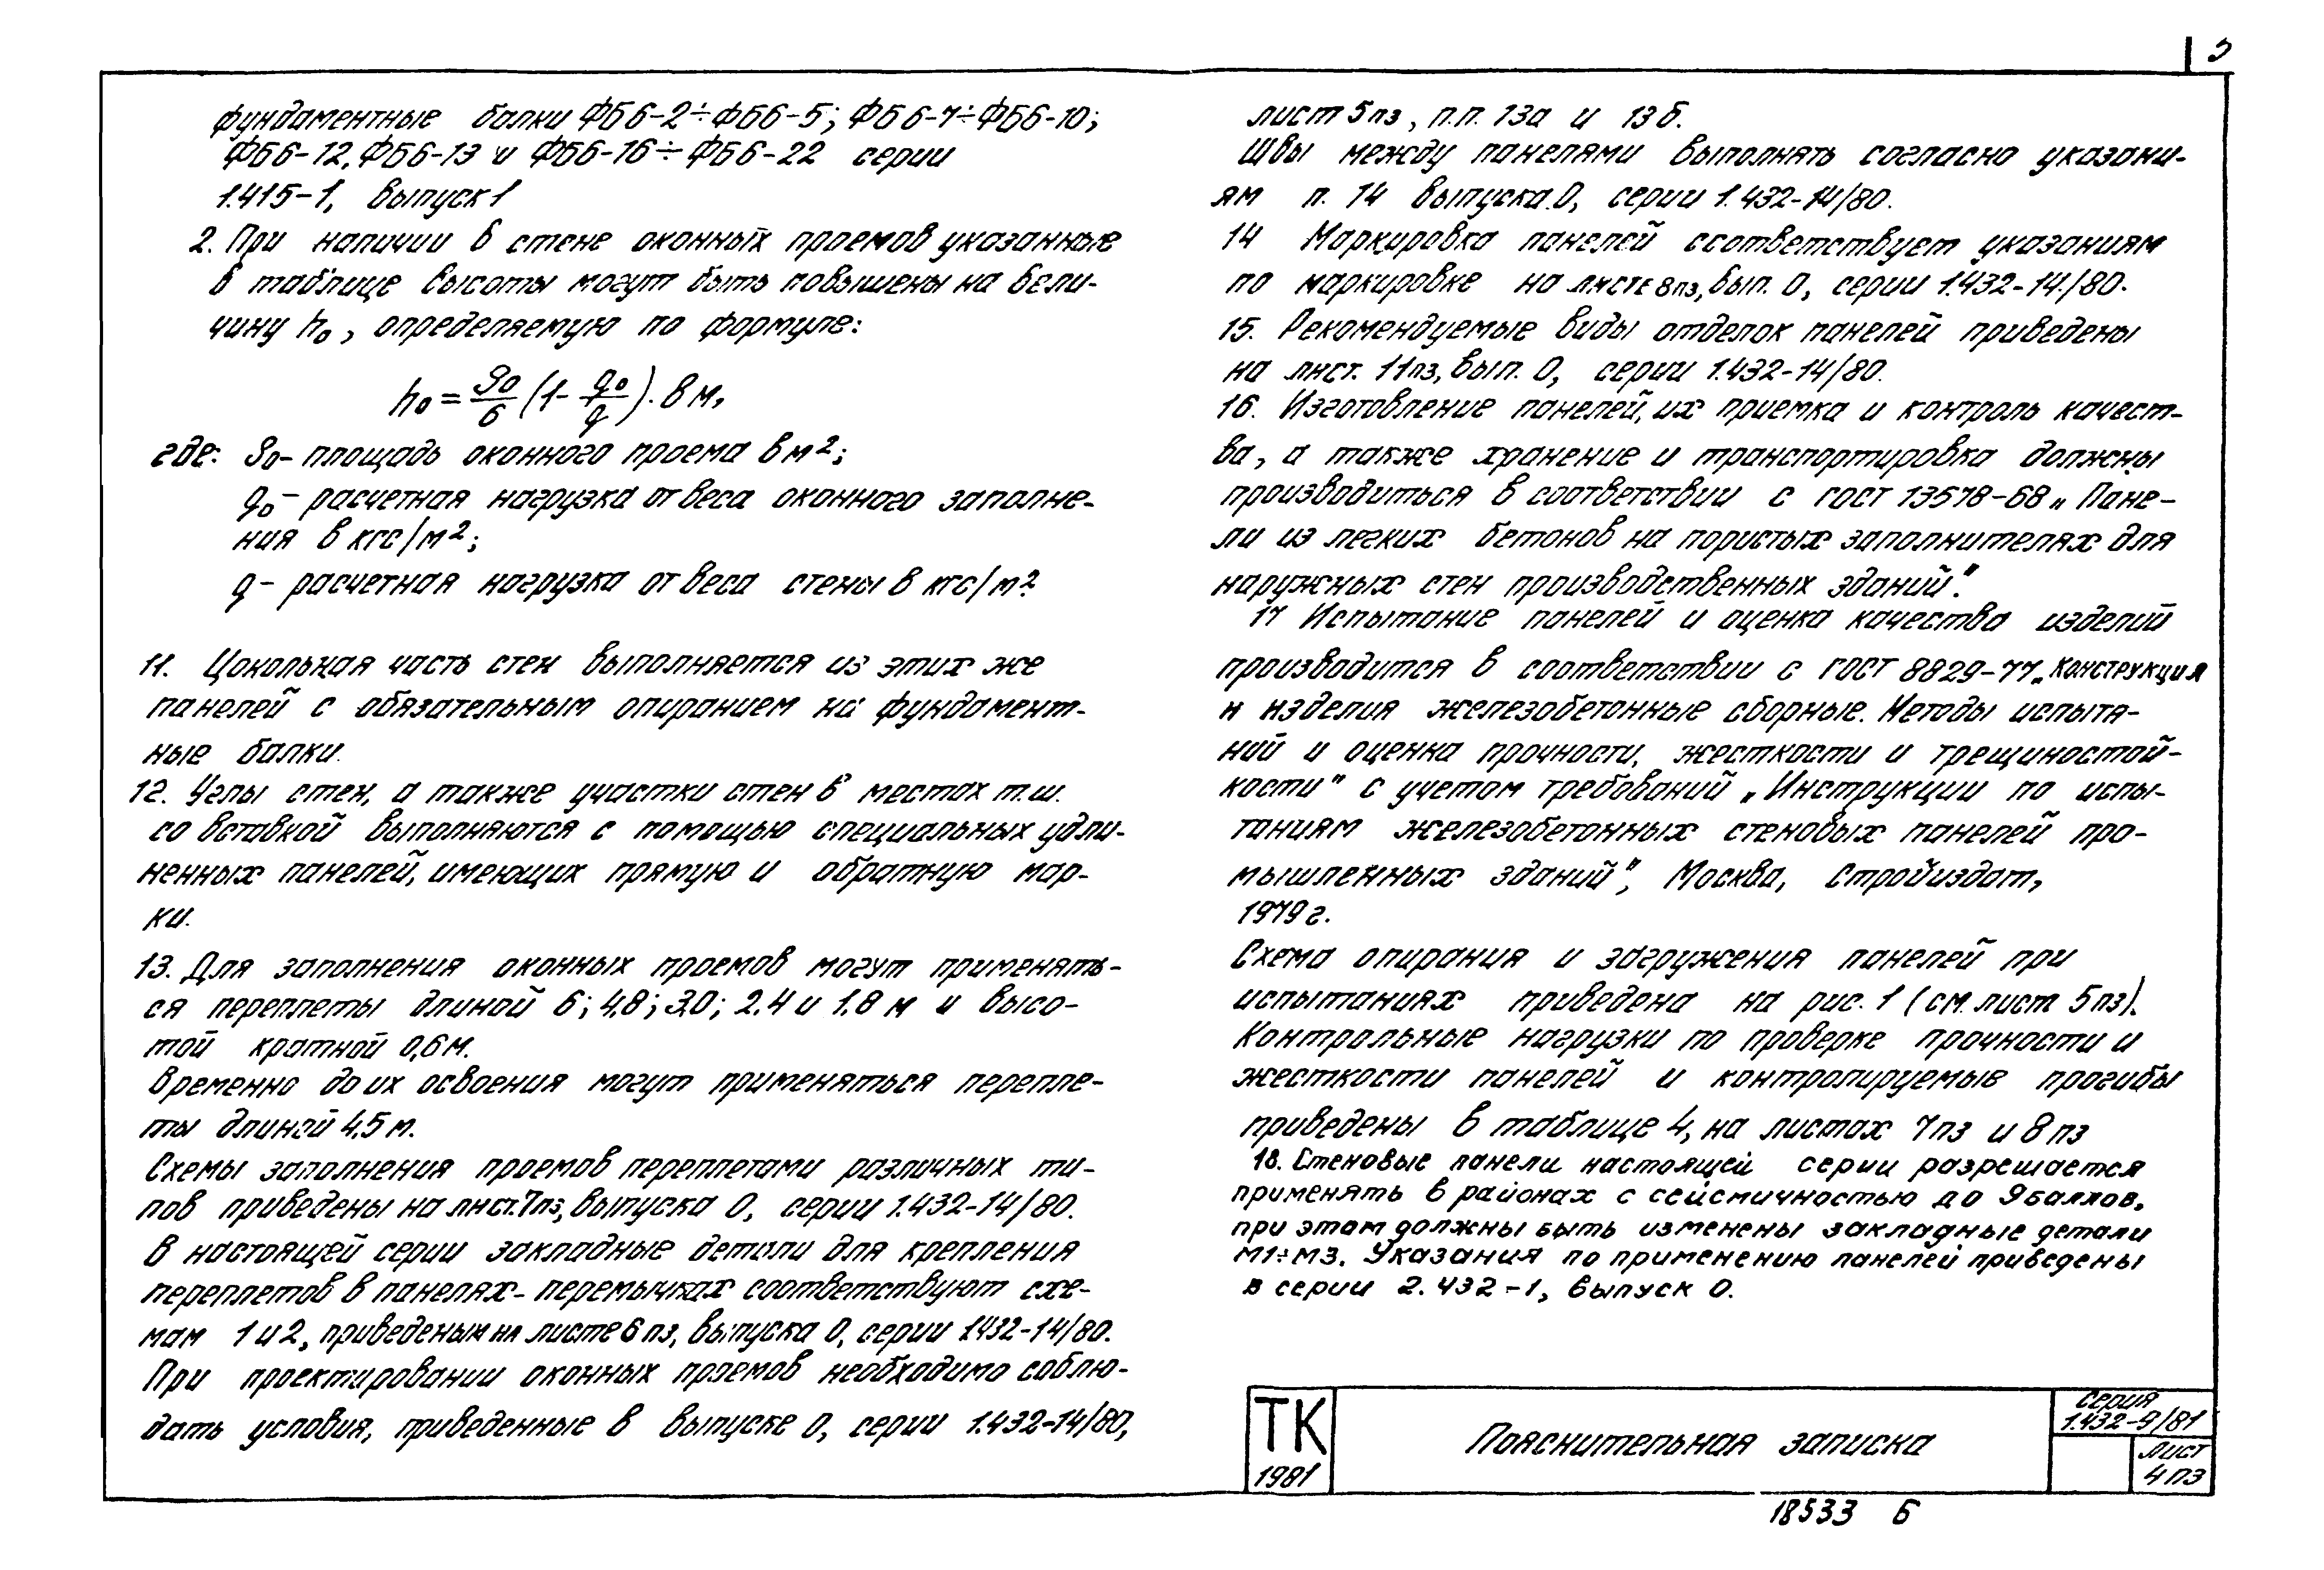 5
фундаментные балки ФБ6-2÷ФБ6-5; ФБ6-7÷ФБ6-10;
ФБ6-12, ФБ6-13 и ФБ6-16÷ФБ6-22 серии
1.415-1, выпуск 1
2. При наличии в стене оконных проемов указанные
в таблице высоты могут быть повышены на вели-
чину h₀, определяемую по формуле:
h₀ = S₀/6 (1 - q₀/q) · в м,
где: S₀- площадь оконного проема в м²;
q₀ - расчетная нагрузка от веса оконного заполне-
ния в кгс/м²;
q - расчетная нагрузка от веса стены в кгс/м².
11. Цокольная часть стен выполняется из этих же
панелей с обязательным опиранием на фундамент-
ные балки.
12. Углы стен, а также участки стен в местах т.ш.
со вставкой выполняются с помощью специальных удли-
ненных панелей, имеющих прямую и обратную мар-
ки.
13. Для заполнения оконных проемов могут применять-
ся переплеты длиной 6; 4,8; 3,0; 2.4 и 1.8 м и высо-
той кратной 0,6 м.
Временно до их освоения могут применяться перепле-
ты длиной 4,5 м.
Схемы заполнения проемов переплетами различных ти-
пов приведены на лист. 7пз, выпуска 0, серии 1.432-14/80.
В настоящей серии закладные детали для крепления
переплетов в панелях-перемычках соответствуют схе-
мам 1 и 2, приведеным на листе 6 пз, выпуска 0, серии 1.432-14/80.
При проектировании оконных проемов необходимо соблю-
дать условия, приведенные в выпуске 0, серии 1.432-14/80,
лист 5 пз, п.п. 13а и 13б.
Швы между панелями выполнять согласно указани-
ям п. 14 выпуска 0, серии 1.432-14/80.
14 Маркировка панелей соответствует указаниям
по маркировке на листе 8 пз, вып. 0, серии 1.432-14/80.
15. Рекомендуемые виды отделок панелей приведены
на лист. 11 пз, вып. 0, серии 1.432-14/80.
16. Изготовление панелей, их приемка и контроль качест-
ва, а также хранение и транспортировка должны
производиться в соответствии с ГОСТ 13578-68 „Пане-
ли из легких бетонов на пористых заполнителях для
наружных стен производственных зданий".
17 Испытание панелей и оценка качества изделий
производится в соответствии с ГОСТ 8829-77 „Конструкция
и изделия железобетонные сборные. Методы испыта-
ний и оценка прочности, жесткости и трещиностой-
кости" с учетом требований „Инструкции по испы-
таниям железобетонных стеновых панелей про-
мышленных зданий", Москва, Стройиздат,
1979 г.
Схема опирания и загружения панелей при
испытаниях приведена на рис. 1 (см. лист 5 пз).
Контрольные нагрузки по проверке прочности и
жесткости панелей и контролируемые прогибы
приведены в таблице 4, на листах 7 пз и 8 пз
18. Стеновые панели настоящей серии разрешается
применять в районах с сейсмичностью до 9 баллов,
при этом должны быть изменены закладные детали
М1÷М3. Указания по применению панелей приведены
в серии 2.432-1, выпуск 0.
ТК
1981
Пояснительная записка
серия
1.432-9/81
лист
4 пз
18533 6